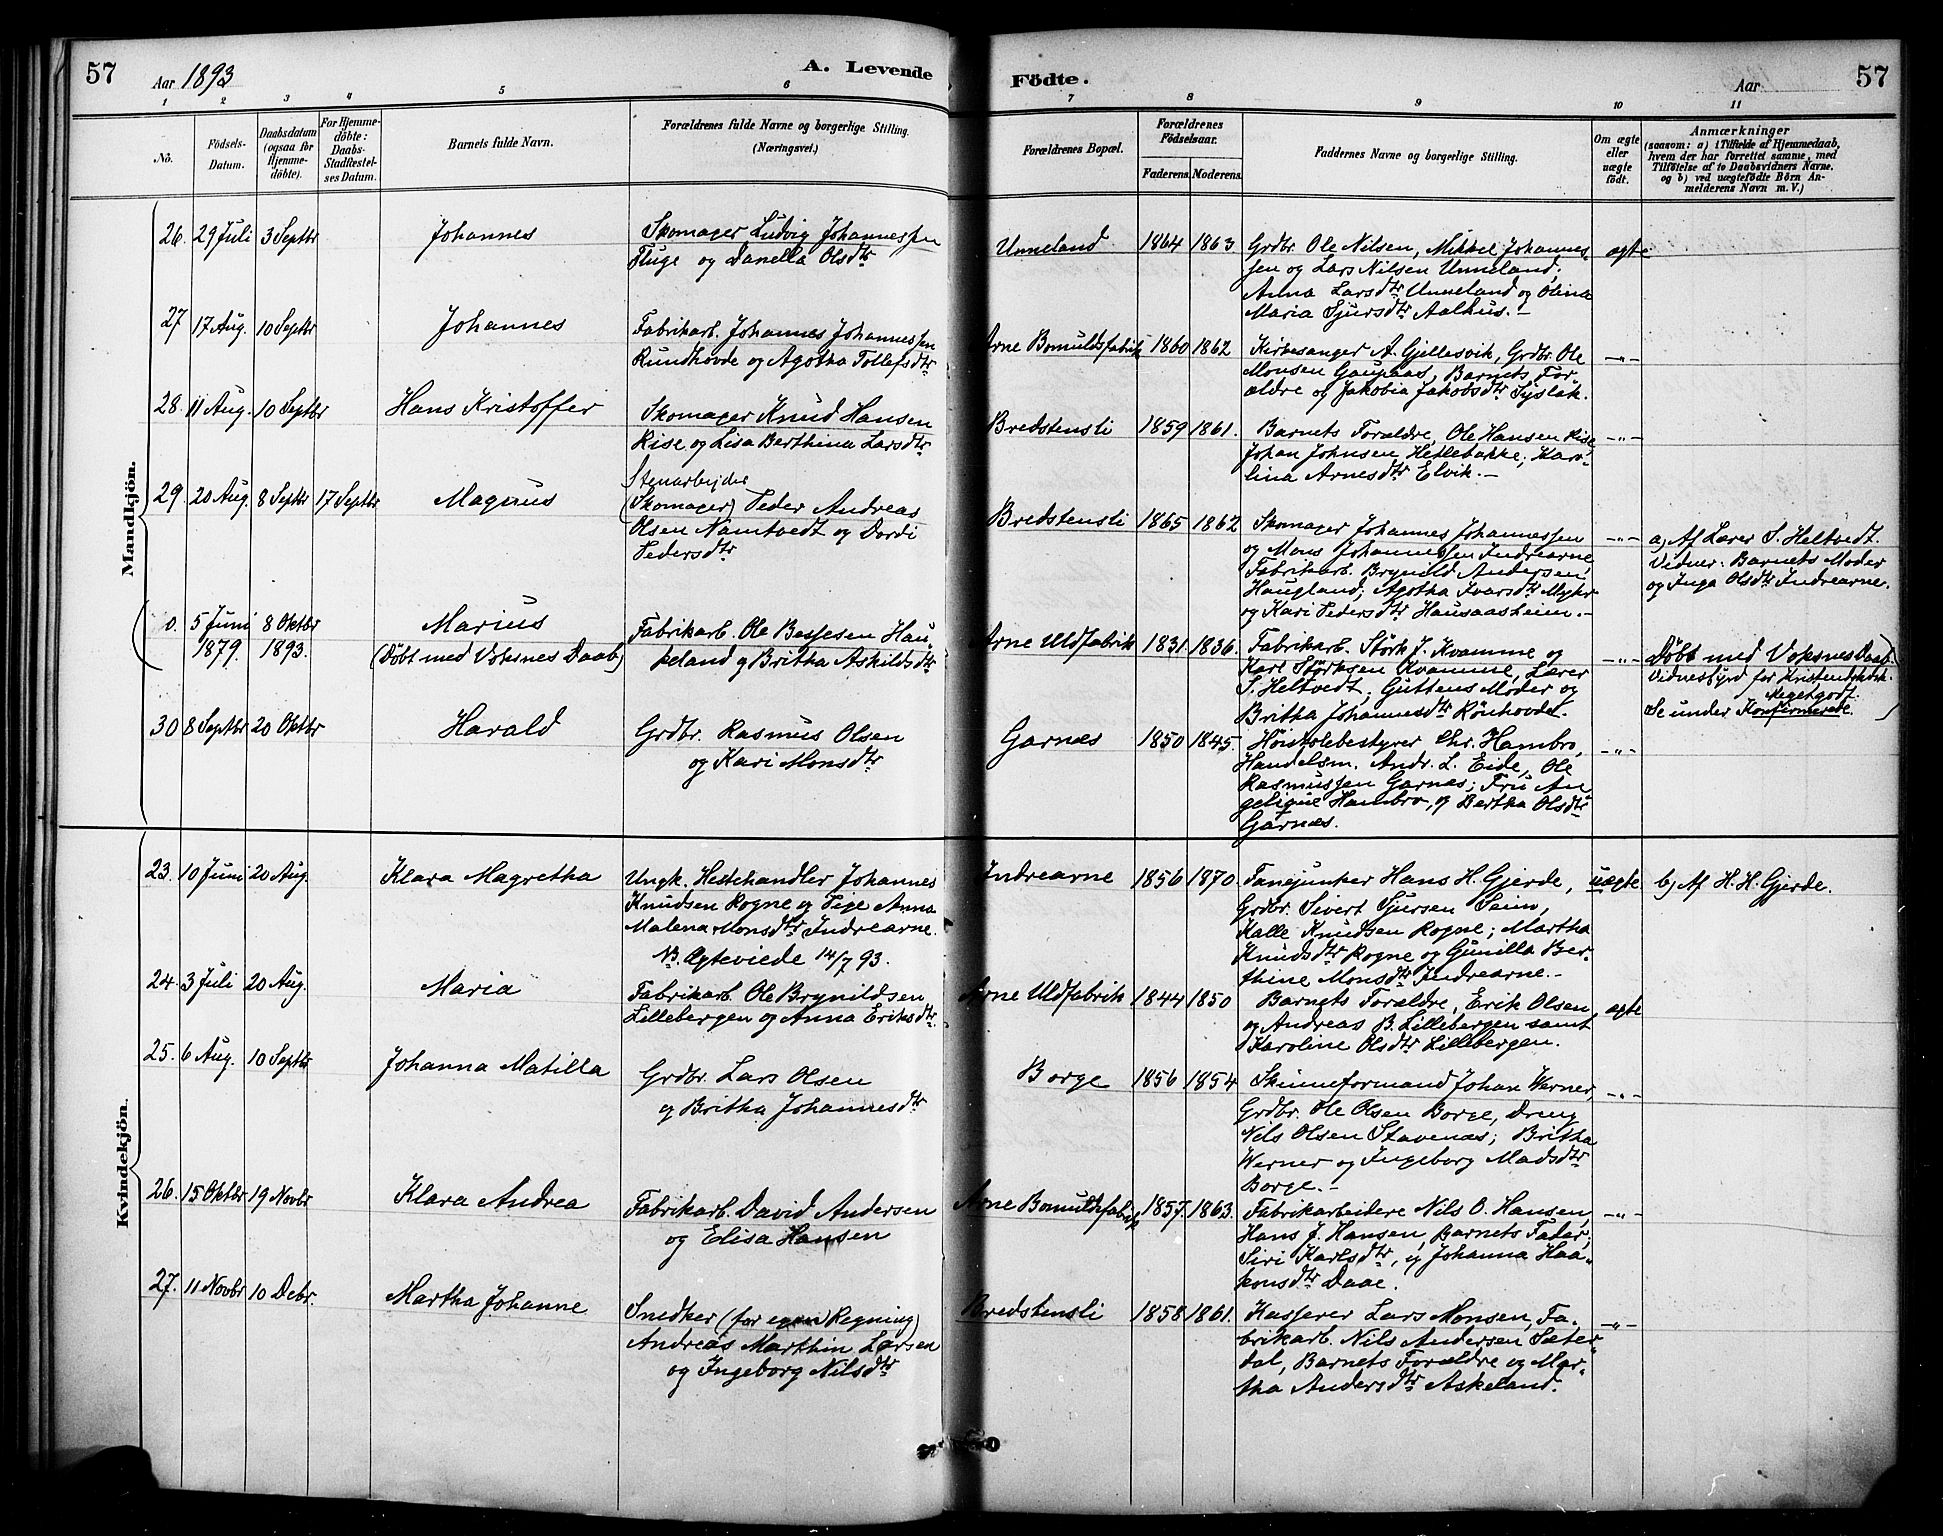 57 Aar 1893 A. Levende Fødte. Aar 57
1 2 3 4 5 6 7 8 9 10 11
No.
Födsels-
Datum.
Daabsdatum
(ogsaa for
Hjemme-
døbte).
For Hjemme-
döbte:
Daabs-
Stadfestel-
ses Datum.
Barnets fulde Navn.
Forældrenes fulde Navne og borgerlige Stilling.
(Næringsvei.)
Forældrenes Bopæl.
Forældrenes
Födselsaar.
Faderens. Moderens.
Faddernes Navne og borgerlige Stilling.
Om ægte
eller
uægte
født.
Anmærkninger
(saasom: a) i Tilfælde af Hjemmedaab,
hvem der har forrettet samme, med
Tilföielse af to Daabsvidners Navne,
og b) ved uægtefödte Börn An-
melderens Navn m. V.)
Mandkjön.
26. 29 Juli 3 Septbr Johannes
Skomager Ludvig Johannessen
Fluge og Danella Olsdtr
Unneland 1864 1863
Grdbr. Ole Nilsen, Mikkel Johannes-
sen og Lars Nilsen Unneland;
Anna Larsdtr Unneland og Olina
Maria Sjursdtr Aalhus.
ægte
27 17 Aug. 10 Septbr Johannes
Fabrikarb. Johannes Johannessen
Rundhovde og Agotha Tollefsdtr
Arne Bomuldsfabrik 1860 1862
Kirkesanger A. Gjellesvik, Grdbr. Ole
Monsen Gaupaas, Barnets For-
ældre og Jakobia Jakobsdtr Syslak.
-"-
28. 11 Aug. 10 Septbr Hans Kristoffer
Skomager Knud Hansen
Rise og Lisa Berthina Larsdtr
Bredstensli 1859 1861.
Barnets Forældre, Ole Hansen Rise
Johan Johnsen Hetlebakke, Karo-
lina Arnesdtr Elvik.
-"-
29. 20 Aug. 8 Septbr 17 Septbr Magnus
Stenarbejder
(Skomager) Peder Andreas
Olsen Namtvedt og Dordi
Pedersdtr
Bredstensli 1865 1862
Skomager Johannes Johannessen
og Mons Johannessen Indrearne,
Fabrikarb. Brynild Andersen
Haugland; Agotha Ivarsdtr
og Kari Pedersdtr
-"-
a) Af Lærer S. Heltvedt.
Vidner: Barnets Moder
og Inga Olsdtr Indrearne.
0. 5 Juni 8 Oktbr Marius
1879. 1893. (Døbt med Voksnes Daab)
Fabrikarb. Ole Bessesen Hau-
keland og Britha Askildsdtr
Arne Uldfabrik 1831. 1836.
Fabrikarb. Störk J. Kvamme og
Karl Störksen Kvamme, Lærer
S. Heltvedt, Guttens Moder og
Britha Johannesdtr Rönhovde.
-"-
Døbt med Voksnes Daab.
Vidnesbyrd for Kristendskdsk.
Megetgodt.
Se under Konfirmerede.
30 8 Septbr 20 Oktbr Harald
Grdbr. Rasmus Olsen
og Kari Monsdtr
Garnæs 1850 1845.
Høiskolebestyrer Chr. Hambro,
Handelsm. Andr. L. Eide, Ole
Rasmussen Garnæs; Fru An-
gelique Hambro, og Bertha Olsdtr
Garnæs.
-"-
Kvindekjön.
23. 10 Juni 20 Aug. Klara Magretha
Ungk. Hestehandler Johannes
Knudsen Rogne og Pige Anna
Malena Monsdtr Indrearne.
NB. Ægteviede 14/7 93.
Indrearne 1856 1870
Fanejunker Hans H. Gjerde,
Grdbr. Sivert Sjursen Seim,
Kalle Knudsen Rogne; Martha
Knudsdtr Rogne og Gunilla Ber-
thine Monsdtr Indrearne.
uægte b) Af H. H. Gjerde.
24. 3 Juli 20 Aug. Maria
Fabrikarb. Ole Brynildsen
Lillebergen og Anna Eriksdtr.
Arne Uldfabrik 1844 1850
Barnets Forældre, Erik Olsen,
og Andreas B. Lillebergen samt
Karoline Olsdtr Lillebergen.
ægte
25. 6 Aug. 10 Septbr Johanna Matilla
Grdbr. Lars Olsen
og Britha Johannesdtr
Borge 1856 1854
Skinneformand Johan Werner,
Grdbr. Ole Olsen Borge, Dreng
Nils Olsen Stavenæs; Britha
Werner og Ingeborg Madsdtr
Borge.
-"-
26. 15 Oktbr 19 Novbr Klara Andrea
Fabrikarb. David Andersen
og Elisa Hansen
Arne Bomuldsfabrik 1857. 1863.
Fabrikarbeidere Nils O. Hansen,
Hans J. Hansen, Barnets Fader;
Siri Karlsdtr, og Johanna Haa-
konsdtr Daae.
-"-
27. 11 Novbr 10 Debr. Martha Johanne
Snedker (for egen Regning)
Andreas Marthin Larsen
og Ingeborg Nilsdtr
Bredstensli 1858 1861.
Kasserer Lars Monsen, Fa-
brikarb. Nils Andersen Sæter-
dal, Barnets Forældre og Mar-
tha Andersdtr Askeland.
-"-